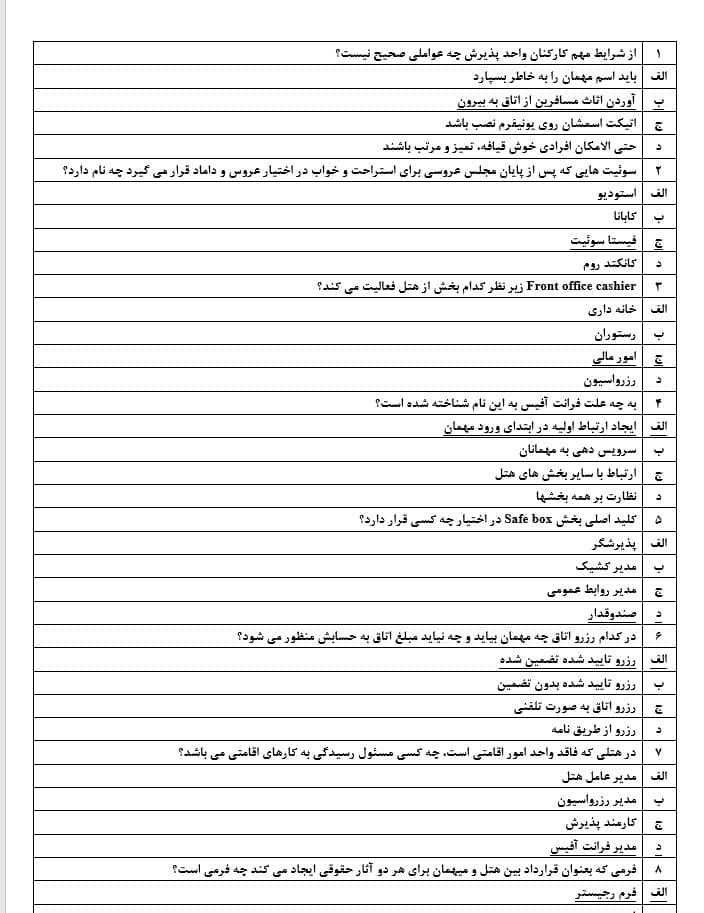 ۱ از شرایط مهم کارکنان واحد پذیرش چه عواملی صحیح نیست؟
الف باید اسم مهمان را به خاطر بسپارد
ب آوردن اثاث مسافرین از اتاق به بیرون
ج اتیکت اسمشان روی یونیفرم نصب باشد
د حتی الامکان افرادی خوش قیافه، تمیز و مرتب باشند
۲ سوئیت هایی که پس از پایان مجلس عروسی برای استراحت و خواب در اختیار عروس و داماد قرار می گیرد چه نام دارد؟
الف استودیو
ب کابانا
ج فیستا سوئیت
د کانکتد روم
۳ Front office cashier زیر نظر کدام بخش از هتل فعالیت می کند؟
الف خانه داری
ب رستوران
ج امور مالی
د رزرواسیون
۴ به چه علت فرانت آفیس به این نام شناخته شده است؟
الف ایجاد ارتباط اولیه در ابتدای ورود مهمان
ب سرویس دهی به مهمانان
ج ارتباط با سایر بخش های هتل
د نظارت بر همه بخشها
۵ کلید اصلی بخش Safe box در اختیار چه کسی قرار دارد؟
الف پذیرشگر
ب مدیر کشیک
ج مدیر روابط عمومی
د صندوقدار
۶ در کدام رزرو اتاق چه مهمان بیاید و چه نیاید مبلغ اتاق به حسابش منظور می شود؟
الف رزرو تایید شده تضمین شده
ب رزرو تایید شده بدون تضمین
ج رزرو اتاق به صورت تلفنی
د رزرو از طریق نامه
۷ در هتلی که فاقد واحد امور اقامتی است، چه کسی مسئول رسیدگی به کارهای اقامتی می باشد؟
الف مدیر عامل هتل
ب مدیر رزرواسیون
ج کارمند پذیرش
د مدیر فرانت آفیس
۸ فرمی که بعنوان قرارداد بین هتل و میهمان برای هر دو آثار حقوقی ایجاد می کند چه فرمی است؟
الف فرم رجیستر